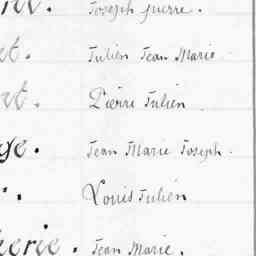 Joseph pierre.
et. Julien Jean Marie
et. Pierre Julien
ge. Jean Marie Joseph.
Louis Julien
herie. Jean Marie.